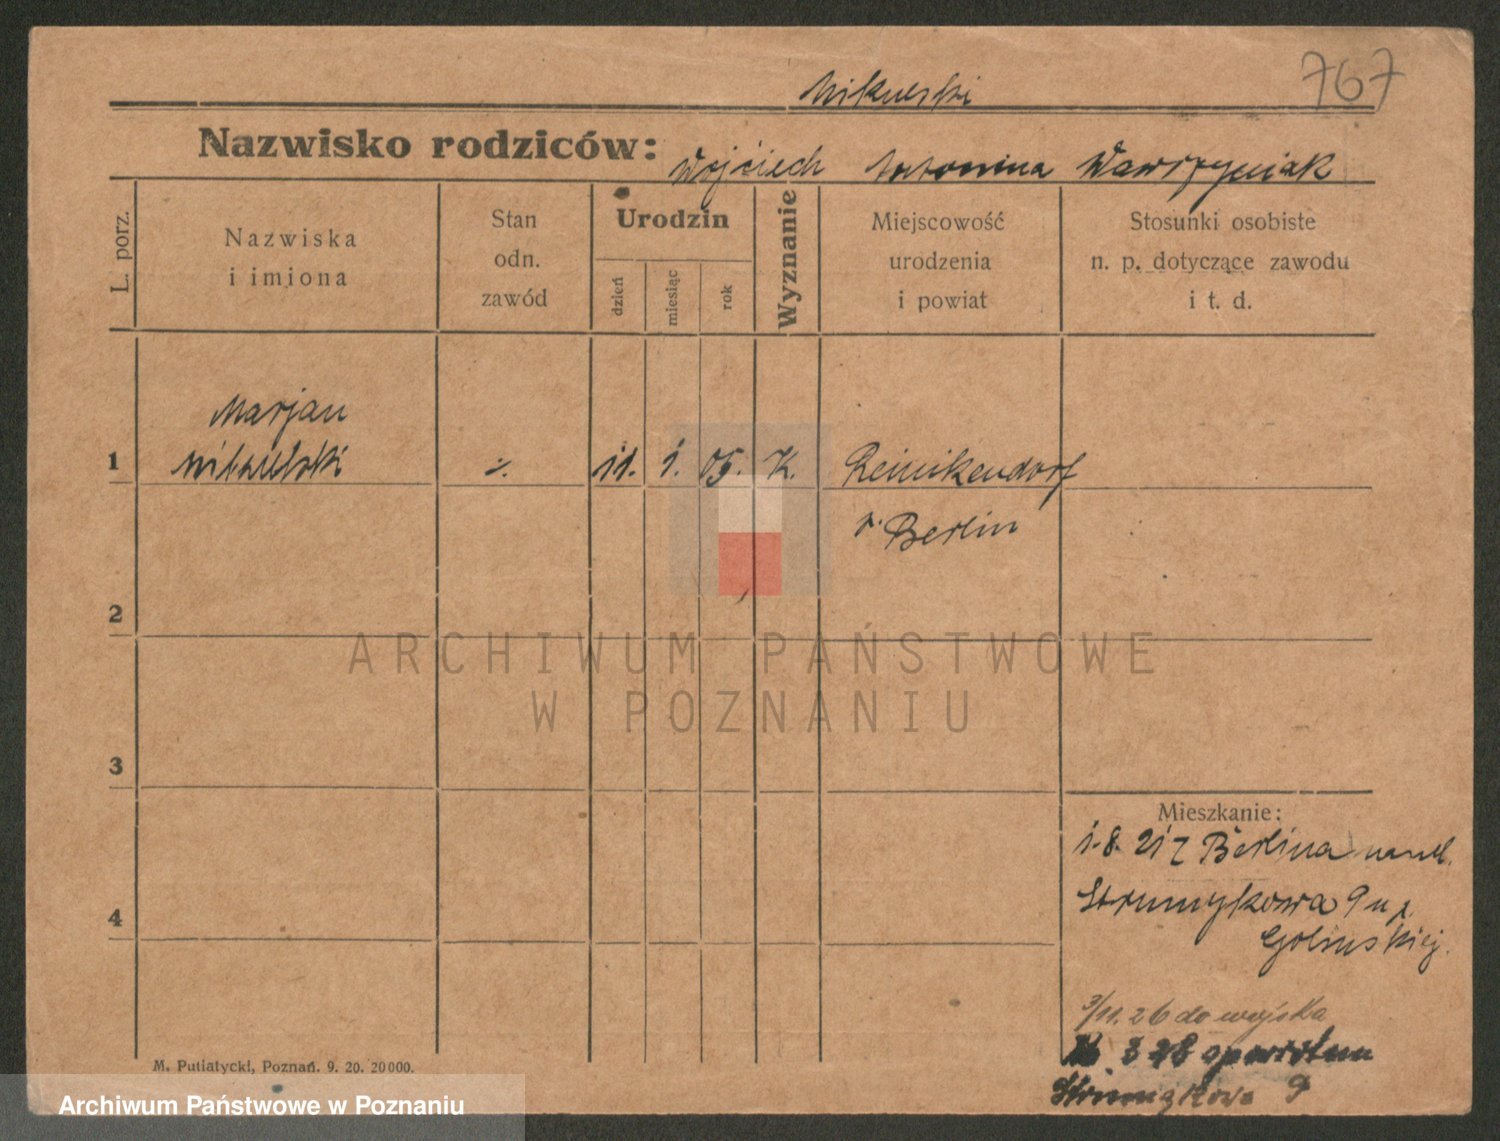 767
Mikulski
Nazwisko rodziców:
Wojciech Antonina Wawrzyniak
L. porz.
Nazwiska
i imiona
Stan
odn.
zawód
Urodzin
dzień
miesiąc
rok
Wyznanie
Miejscowość
urodzenia
i powiat
Stosunki osobiste
n. p. dotyczące zawodu
i t. d.
Marjan
1 Mikulski 11. 1. 05. K. Reinikendorf
p. Berlin
2
ARCHIWUM PAŃSTWOWE
W POZNANIU
3
Mieszkanie:
1.8. 21 z Berlina
4
Strumykowa 9 u p.
Golinskiej.
3/11. 26 do wojska
Strumykowa 9
M. Putiatycki, Poznań. 9. 20. 20000.
Archiwum Państwowe w Poznaniu